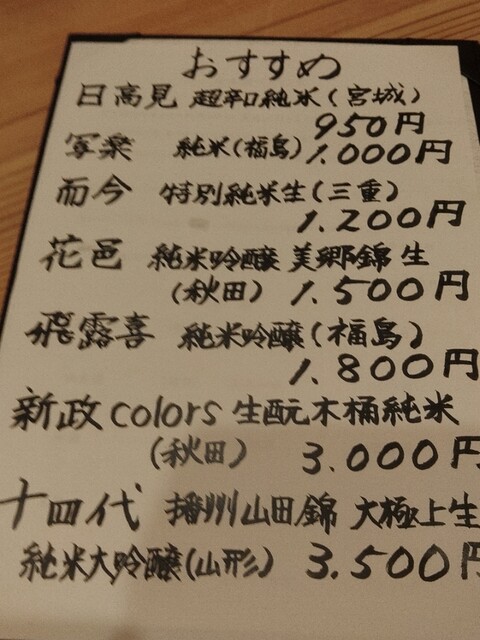 おすすめ
日高見 超辛口純米(宮城)
950円
写楽 純米(福島) 1.000円
而今 特別純米生(三重)
1.200円
花邑 純米吟醸 美郷錦 生
(秋田) 1.500円
飛露喜 純米吟醸(福島)
1.800円
新政 colors 生酛木桶純米
(秋田) 3.000円
十四代 播州山田錦 大極上生
純米大吟醸(山形) 3.500円